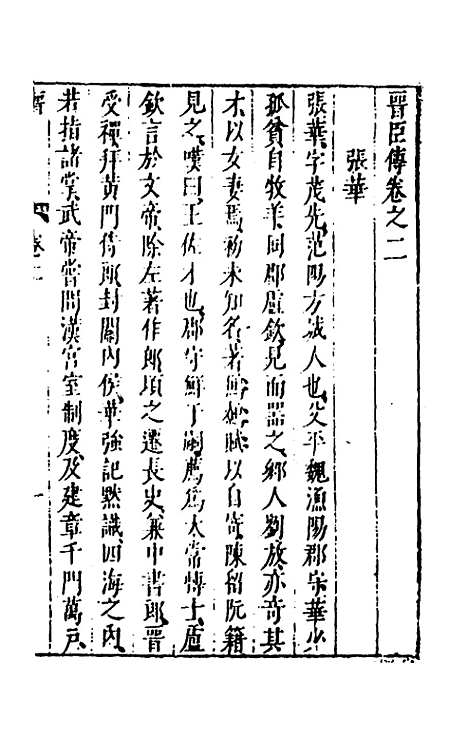 晉臣傳卷之二
張華
張華字茂先范陽方城人也父平魏漁陽郡守華少
孤貧自牧羊同郡盧欽見而器之鄉人劉放亦奇其
才以女妻焉初未知名著鷦鷯賦以自寄陳留阮籍
見之嘆曰王佐才也郡守鮮于嗣薦爲太常博士盧
欽言於文帝除左著作郎頃之遷長史兼中書郎晉
受禪拜黃門侍郎封關內侯華強記默識四海之內
若指諸掌武帝嘗問漢宮室制度及建章千門萬戶
卷二